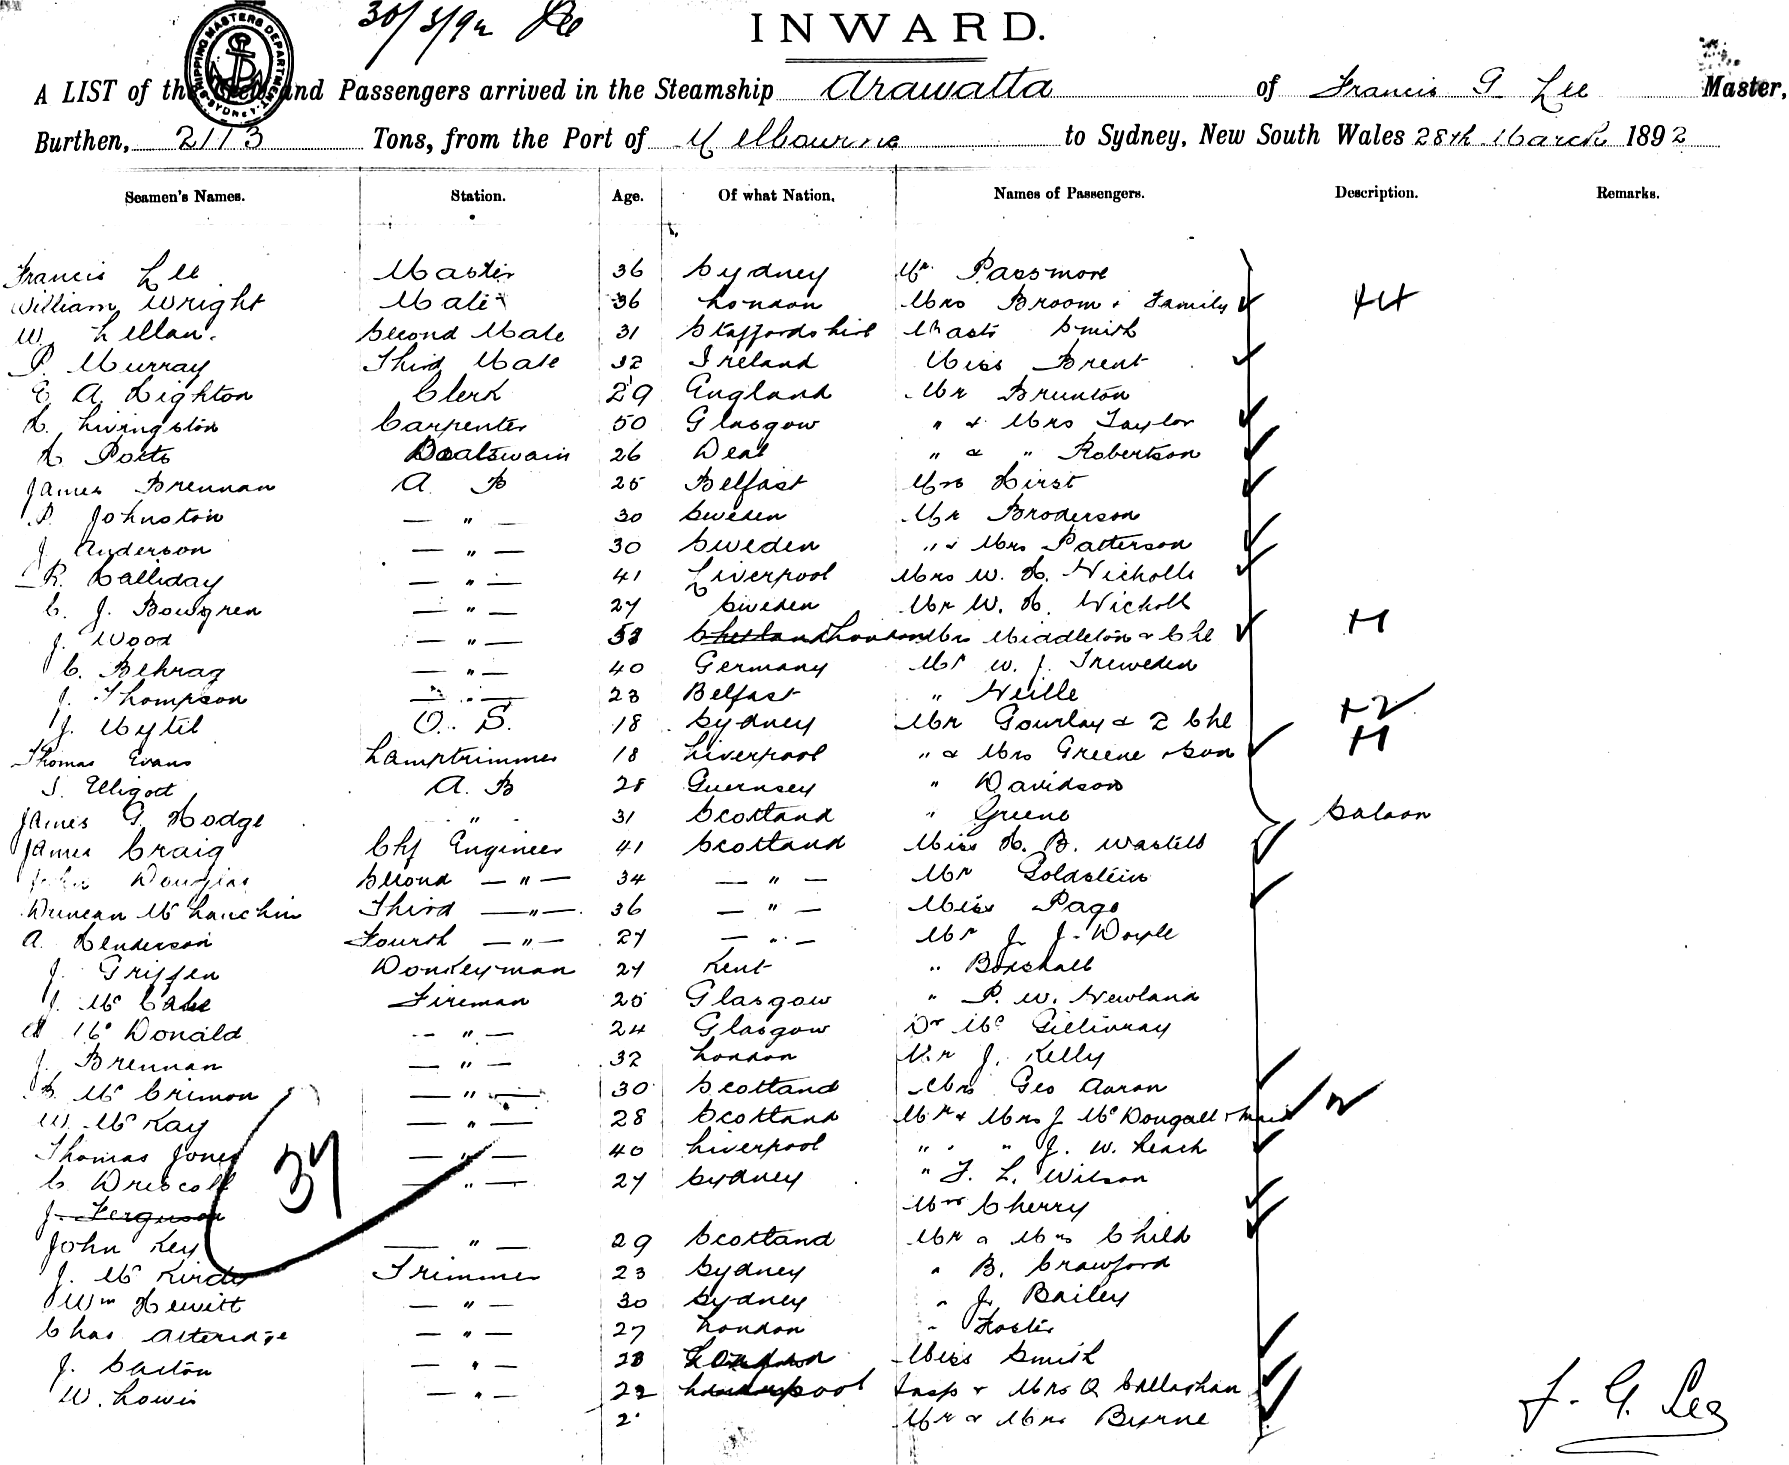 30/3/92
INWARD.
SHIPPING MASTERS DEPARTMENT SYDNEY
A LIST of the Crew and Passengers arrived in the Steamship Arawatta of Francis G Lee Master,
Burthen, 2113 Tons, from the Port of Melbourne to Sydney, New South Wales 28th March 1892
Seamen's Names. Station. Age. Of what Nation. Names of Passengers. Description. Remarks.
Francis Lee Master 36 Sydney Mr Passmore
William Wright Mate 36 London Mrs Broom & Family
W. Lillan. Second Mate 31 Staffordshire Mast Smith
P. Murray Third Mate 32 Ireland Miss Brent
E A Highton Clerk 29 England Mr Brunton
H. Livingston Carpenter 50 Glasgow " & Mrs Taylor
H Potts Boatswain 26 Deal " & " Robertson
James Brennan A B 25 Belfast Mrs Hirst
P. Johnston — " — 30 Sweden Mr Broderson
J. Anderson — " — 30 Sweden " & Mrs Patterson
R. Halliday — " — 41 Liverpool Mrs W. H. Nicholls
C. J. Bowgren — " — 27 Sweden Mr W. H. Nicholl
J. Wood — " — 53 Shetland London Mrs Middleton & Chl
C. Behrag — " — 40 Germany Mr W. J. Treweden
J. Thompson — " — 23 Belfast " Neille
J. Mytil O. S. 18 Sydney Mr Gourlay & 2 Chl
Thomas Evans Lamptrimmer 18 Liverpool " & Mrs Greene & Son
S. Elligott A. B 28 Guernsey " Davidson
James G Hodge " 31 Scotland " Greene Saloon
James Craig Chf Engineer 41 Scotland Miss H. B. Wastell
John Douglas Second — " — 34 — " — Mr Goldstein
Duncan Mc Lauchlin Third — " — 36 — " — Miss Page
A. Henderson Fourth — " — 27 — " — Mr J. J. Doyle
J. Griffen Donkeyman 27 Kent " Boxshall
J. Mc Cabe Fireman 25 Glasgow " P. W. Newland
A Mc Donald — " — 24 Glasgow Dr Mc Gillivray
J. Brennan — " — 32 London Mr J. Kelly
D. Mc Crimon — " — 30 Scotland Mrs Geo Aaron
W. Mc Kay — " — 28 Scotland Mr & Mrs J Mc Dougall & Maid
Thomas Jones — " — 40 Liverpool " " " J. W. Leach
C Driscoll — " — 27 Sydney " F. L. Wilson
J. Ferguson Mrs Cherry
37
John Key — " — 29 Scotland Mr & Mrs Child
J. Mc Kirdy Trimmer 23 Sydney " B. Crawford
Wm Hewitt — " — 30 Sydney " J. Bailey
Chas Atteridge — " — 27 London " Foster
J. Saxton — " — 28 London Miss Smith
W. Lowis — " — 22 Liverpool Insp & Mrs O Callaghan
2 Mr & Mrs Byrne
F. G. Lee